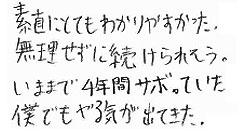 素直にとてもわかりやすかった。
無理せずに続けられそう。
いままで4年間サボっていた
僕でもやる気が出てきた。